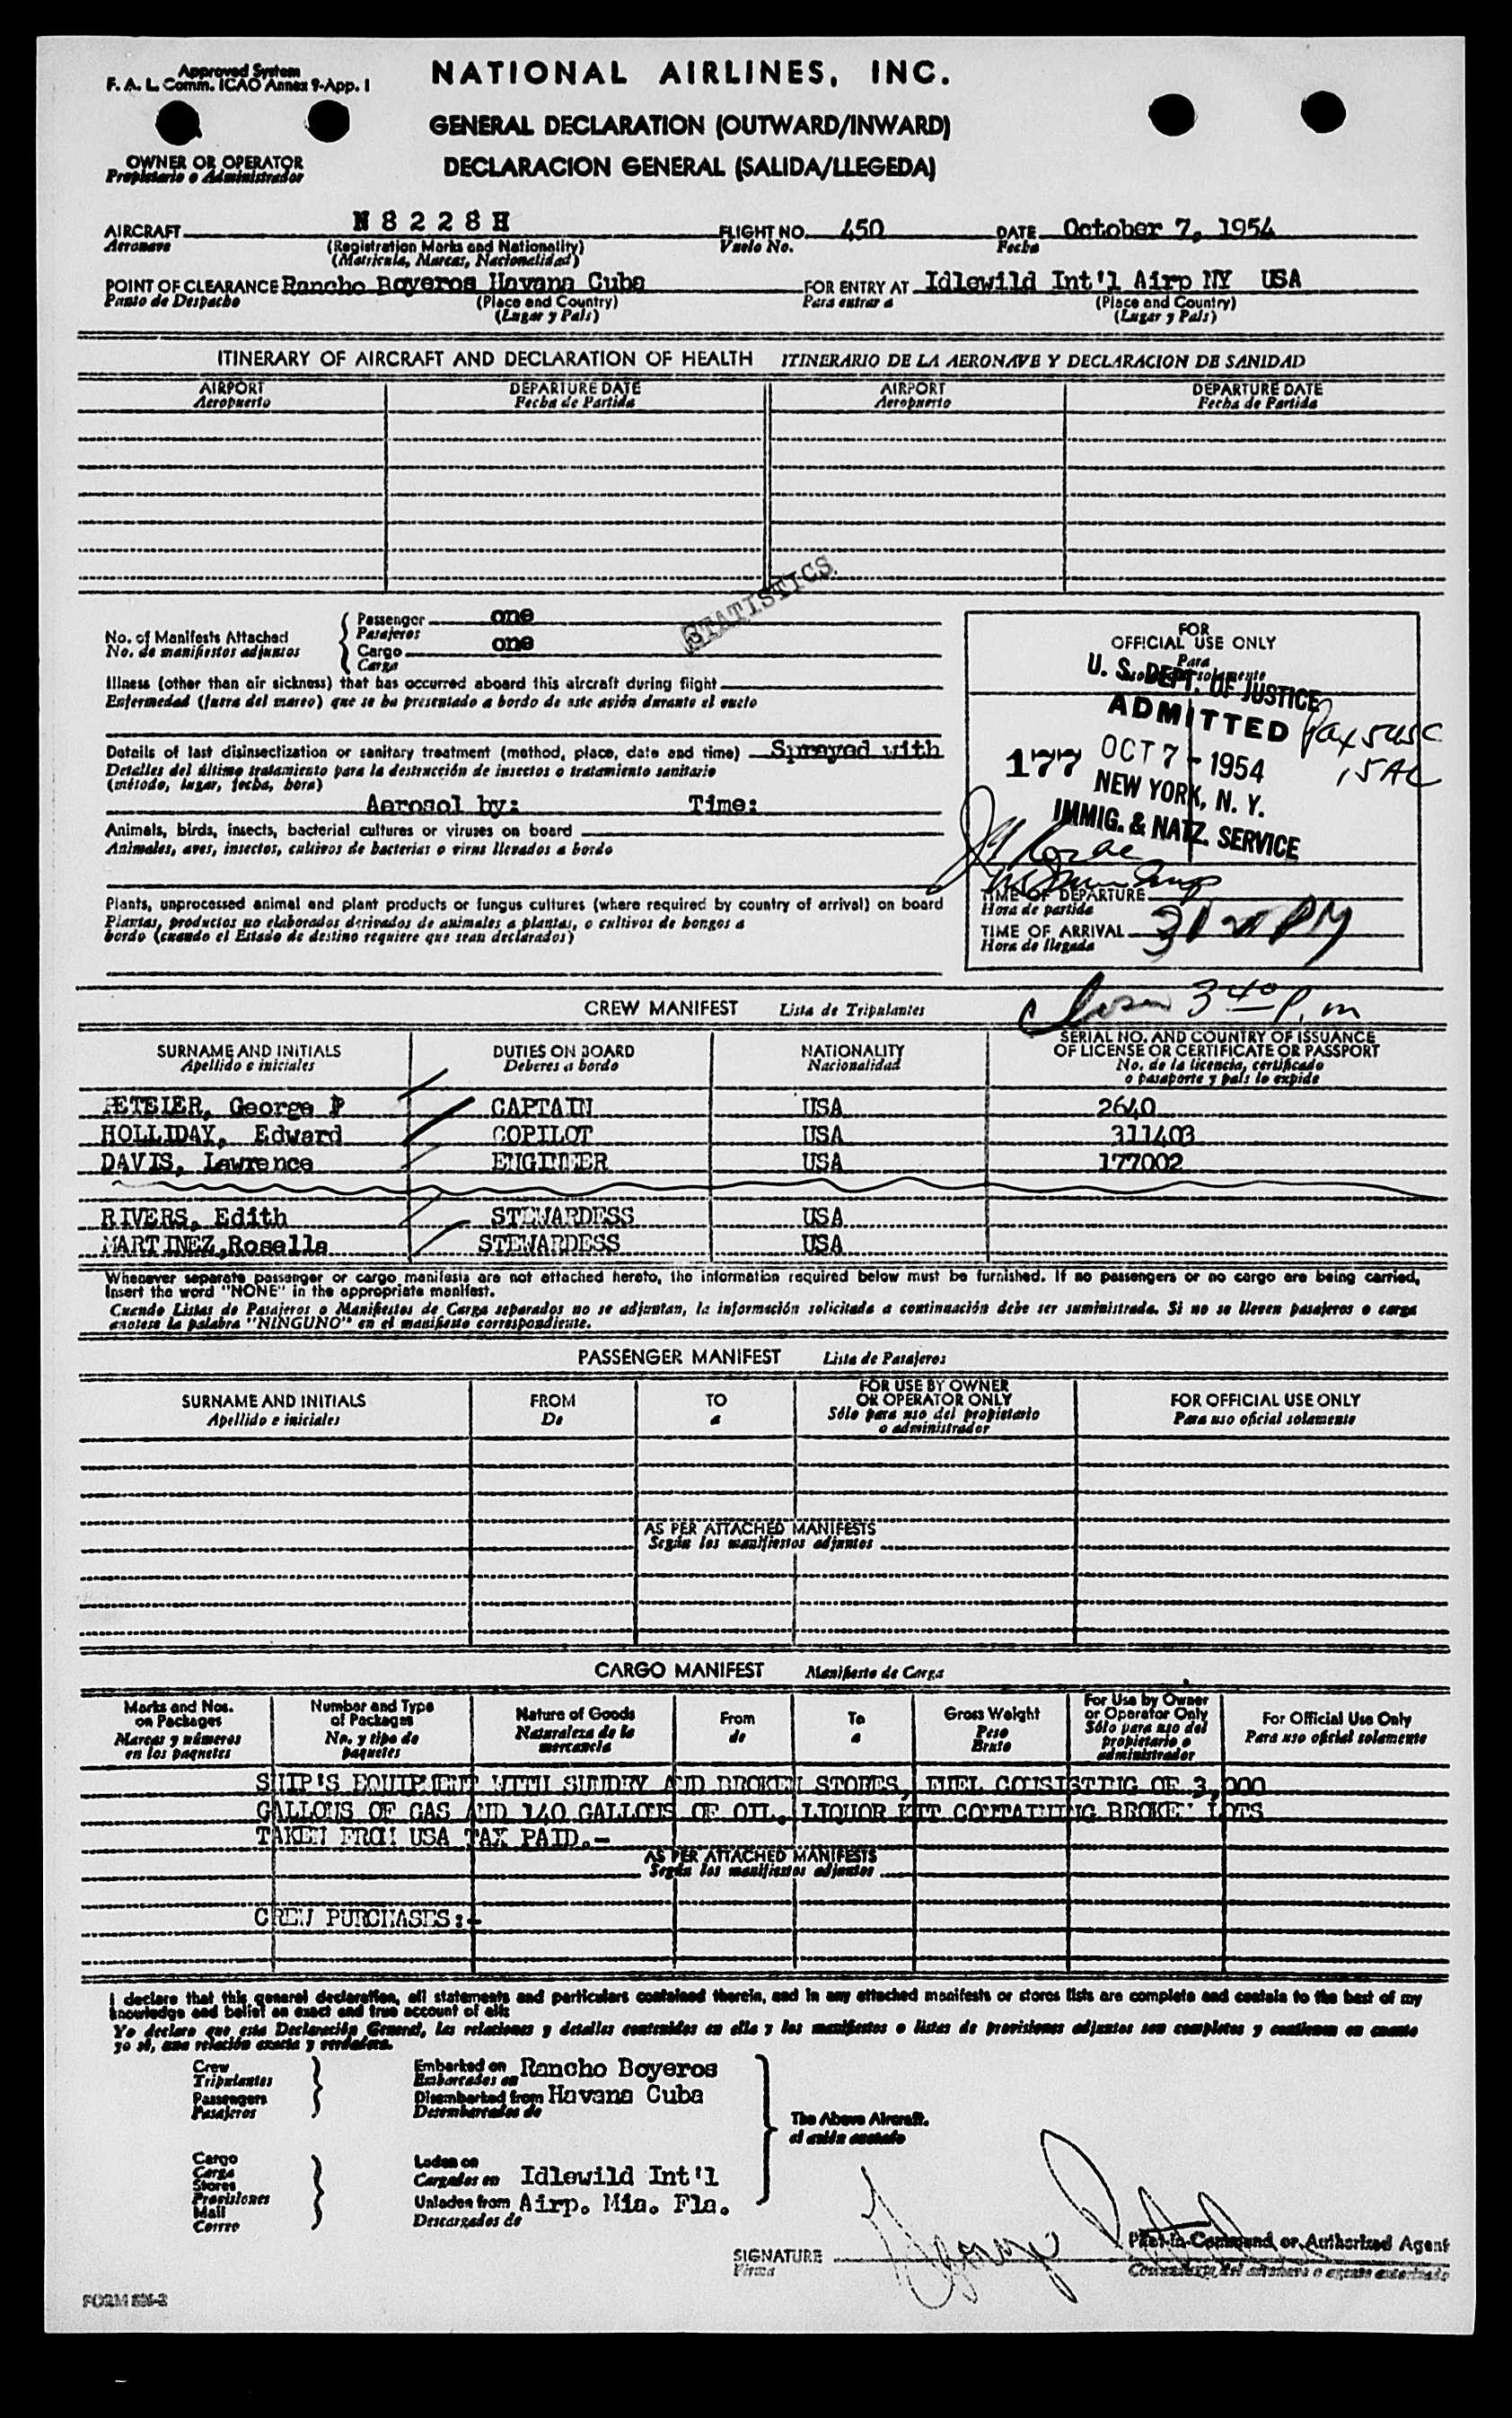 Approved System
F. A. L. Comm. ICAO Annex 9-App. 1
NATIONAL AIRLINES, INC.
GENERAL DECLARATION (OUTWARD/INWARD)
DECLARACION GENERAL (SALIDA/LLEGEDA)
OWNER OR OPERATOR
Propietario o Administrador
AIRCRAFT N 8 2 2 8 H FLIGHT NO. 450 DATE October 7, 1954
Aeronave (Registration Marks and Nationality) Vuelo No. Fecha
(Matricula, Marcas, Nacionalidad)
POINT OF CLEARANCE Rancho Boyeros Havana Cuba FOR ENTRY AT Idlewild Int'l Airp NY USA
Punto de Despacho (Place and Country) Para entrar a (Place and Country)
(Lugar y País) (Lugar y País)
ITINERARY OF AIRCRAFT AND DECLARATION OF HEALTH ITINERARIO DE LA AERONAVE Y DECLARACION DE SANIDAD
AIRPORT DEPARTURE DATE AIRPORT DEPARTURE DATE
Aeropuerto Fecha de Partida Aeropuerto Fecha de Partida
STATISTICS
No. of Manifests Attached
No. de manifiestos adjuntos
Passenger one
Pasajeros
Cargo one
Carga
Illness (other than air sickness) that has occurred aboard this aircraft during flight
Enfermedad (fuera del mareo) que se ha presentado a bordo de este avión durante el vuelo
Details of last disinsectization or sanitary treatment (method, place, date and time) Sprayed with
Detalles del último tratamiento para la destrucción de insectos o tratamiento sanitario
(método, lugar, fecha, hora)
Aerosol by: Time:
Animals, birds, insects, bacterial cultures or viruses on board
Animales, aves, insectos, cultivos de bacterias o virus llevados a bordo
Plants, unprocessed animal and plant products or fungus cultures (where required by country of arrival) on board
Plantas, productos no elaborados derivados de animales a plantas, o cultivos de hongos a
bordo (cuando el Estado de destino requiere que sean declarados)
FOR
OFFICIAL USE ONLY
Para
U. S. DEPT. OF JUSTICE
ADMITTED
177 OCT 7 - 1954
NEW YORK, N. Y.
IMMIG. & NATZ. SERVICE
Pax 5 USC
15 AC
TIME OF DEPARTURE
Hora de partida
TIME OF ARRIVAL
Hora de llegada
3 40 p.m
CREW MANIFEST Lista de Tripulantes
SURNAME AND INITIALS DUTIES ON BOARD NATIONALITY SERIAL NO. AND COUNTRY OF ISSUANCE
OF LICENSE OR CERTIFICATE OR PASSPORT
Apellido e iniciales Deberes a bordo Nacionalidad No. de la licencia, certificado
o pasaporte y país lo expide
George P CAPTAIN USA 2640
HOLLIDAY, Edward COPILOT USA 311403
DAVIS, Lawrence ENGINEER USA 177002
RIVERS, Edith STEWARDESS USA
MARTINEZ, Rosella STEWARDESS USA
Whenever separate passenger or cargo manifests are not attached hereto, the information required below must be furnished. If no passengers or no cargo are being carried,
insert the word "NONE" in the appropriate manifest.
Cuando Listas de Pasajeros o Manifiestos de Carga separados no se adjuntan, la información solicitada a continuación debe ser suministrada. Si no se lleven pasajeros o carga
anotese la palabra "NINGUNO" en el manifiesto correspondiente.
PASSENGER MANIFEST Lista de Pasajeros
SURNAME AND INITIALS FROM TO FOR USE BY OWNER
OR OPERATOR ONLY FOR OFFICIAL USE ONLY
Apellido e iniciales De a Sólo para uso del propietario
o administrador Para uso oficial solamente
AS PER ATTACHED MANIFESTS
Según los manifiestos adjuntos
CARGO MANIFEST Manifiesto de Carga
Marks and Nos.
on Packages
Marcas y números
en los paquetes
Number and Type
of Packages
No. y tipo de
paquetes
Nature of Goods
Naturaleza de la
mercancía
From
de
To
a
Gross Weight
Peso
Bruto
For Use by Owner
or Operator Only
Sólo para uso del
propietario o
administrador
For Official Use Only
Para uso oficial solamente
SHIP'S EQUIPMENT WITH SUNDRY AND BROKEN STORES, FUEL CONSISTING OF 3,000
GALLONS OF GAS AND 140 GALLONS OF OIL, LIQUOR KIT CONTAINING BROKEN LOTS
TAKEN FROM USA TAX PAID.-
AS PER ATTACHED MANIFESTS
Según los manifiestos adjuntos
CREW PURCHASES:-
I declare that this general declaration, all statements and particulars contained therein, and in any attached manifests or stores lists are complete and contain to the best of my
knowledge and belief an exact and true account of all:
Yo declaro que esta Declaración General, las relaciones y detalles contenidos en ella y los manifiestos o listas de provisiones adjuntos son completos y contienen en cuanto
yo sé, una relación exacta y verdadera.
Crew
Tripulantes
Passengers
Pasajeros
Embarked on Rancho Boyeros
Embarcados en
Disembarked from Havana Cuba
Desembarcados de
The Above Aircraft.
el avión anotado
Cargo
Carga
Stores
Provisiones
Mail
Correo
Laden on
Cargados en Idlewild Int'l
Unladen from Airp. Mia. Fla.
Descargados de
SIGNATURE
Firma
Pilot-in-Command or Authorized Agent
Comandante del aeronave o agente autorizado